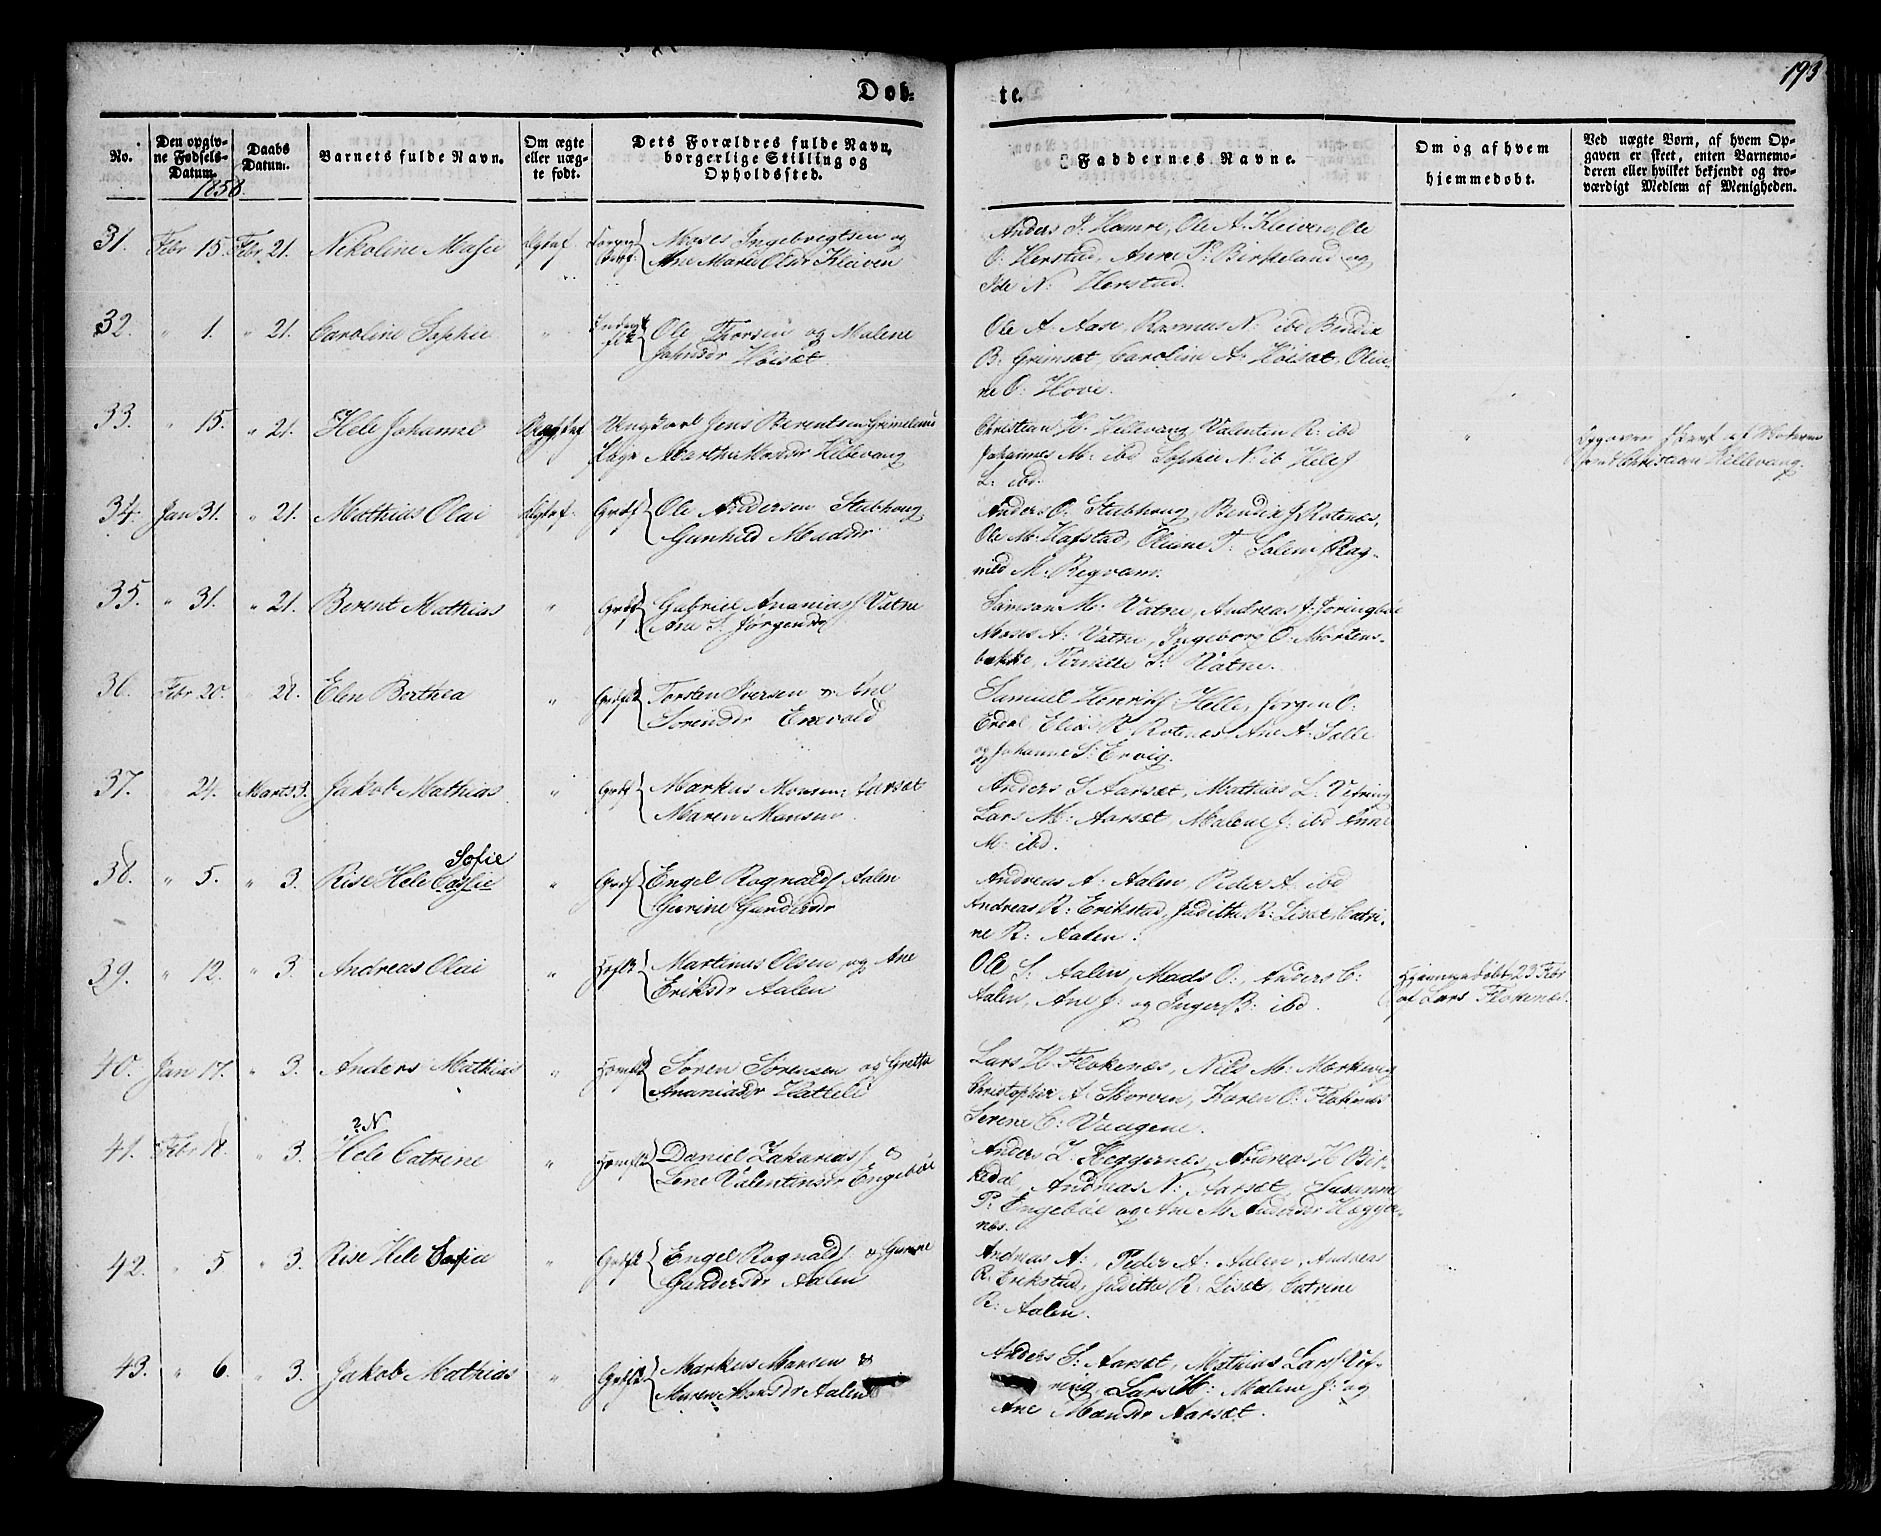 193
Døb-
te.
No.
Den opgiv-
ne Fødsels-
Datum.
Daabs
Datum.
Barnets fulde Navn.
Om ægte
eller uæg-
te født.
Dets Forældres fulde Navn,
borgerlige Stilling og
Opholdssted.
Faddernes Navne.
Om og af hvem
hjemmedøbt.
Ved uægte Børn, af hvem Op-
gaven er skeet, enten Barnemo-
deren eller hvilket bekjendt og tro-
værdigt Medlem af Menigheden.
1850.
31. Febr 15. Febr 21. Nikoline Marie
Moses Ingebrigtsen og
Ane Marie Olsdr Kleiven
Anders J. Hamre, Ole A. Kleiven, Ole
O. Herstad, Anne P: Birkeland og
Ide N: Herstad.
32. " 1. " 21. Caroline Sophie "
Ole Thorsen og Malene
Johnsdr Höiset.
Ole A. Aase, Rasmus N: ibd Bendix
B. Grimset, Caroline A: Höiset, Olia-
ne O: Hove.
33. " 15. " 21. Hele Johanne
Ungkarl Jens Berentsen Grimelund
Pige Martha Madsdr Hillevang
Christian H. Hillevang, Valenten R: ibd
Johannes M: ibd Sophie N: ib Hele J
L: ibd.
"
Opgaven skeet af Moderen
og Christian Hillevang.
34. Jan 31. " 21. Mathias Olai Ægtef. Grdf
Ole Andersen Stubhoug
Gunhild Madsdr
Anders O. Stubhoug, Bendix J Rotenæs,
Ole M: Hafstad, Oliane T: Solem Rag-
nild M: Regvam.
35. " 31. " 21. Berent Mathias " Grdf
Gabriel Ananiass Vatne
Ane S. Jørgensdr
Samson M: Vatne, Andreas A: Joringböe
Moses A: Vatne, Ingeborg O: Mortens-
bakke, Pernille S: Vatne.
36. Febr 20. " 21. Elen Berthea "
Torsten Iversen & Ane
Sörensdr Enevald
Samuel Henriks Helle, Jørgen O:
Eren Elias R Rotenes, Ane A: Solle
og Johanne S: Ervig.
37. " 24. Marts 3. Jakob Mathias " Grdf
Markus Monsen: Aarset
Maren Monsen.
Anders S Aarset, Mathias L. Vefring
Lars M: Aarset Malene J: ibd Anne
M: ibd.
38. " 5. " 3. Rise Hele Sofie " Grdf
Engel Rognalds Aalen
Gurine Gundersdr
Andreas A: Aalen, Peder A: ibd
Andreas R: Erikstad, Judithe R: Liset, Catri-
ne R: Aalen.
39. " 12. " 3. Andreas Olai "
Martinus Olsen og Ane
Eriksdr Aalen
Ole S: Aalen, Mads O:, Anders C:
Aalen, Ane J: og Inger B: ibd.
Hjemmedøbt 23 Febr
af Lars Flokenæs.
40. Jan 17. " 3. Anders Mathias "
Sören Sörensen og Grethe
Ananiasdr Hatteli
Lars H Flokenæs, Nils M: Markevig
Christopher A Skorven, Karen O: Flokenæs
Serene C: Vaagene.
? N
41. Febr 18. " 3. Hele Catrine "
Daniel Zakariass &
Lene Valentinsdr Engeböe
Anders L Heggernes, Andreas H Bir-
kedal, Andreas N: Aarset, Susanne
P: Engeböe og Ane M. Andersdr Hegger-
nes.
42. " 5 " 3. Rise Hele Sofie "
Engel Rognalds & Gurine
Gundersdr Aalen
Andreas A:, Peder A: Aalen, Andreas
R: Erikstad, Judithe R: Liset, Catrine
R: Aalen.
43. " 6. " 3. Jakob Mathias "
Markus Monsen &
Maren Monsdr Aalen
Anders S: Aarset, Mathias Lars Vef-
ring, Lars M: Malene J: og
Ane Monsdr Aarset.